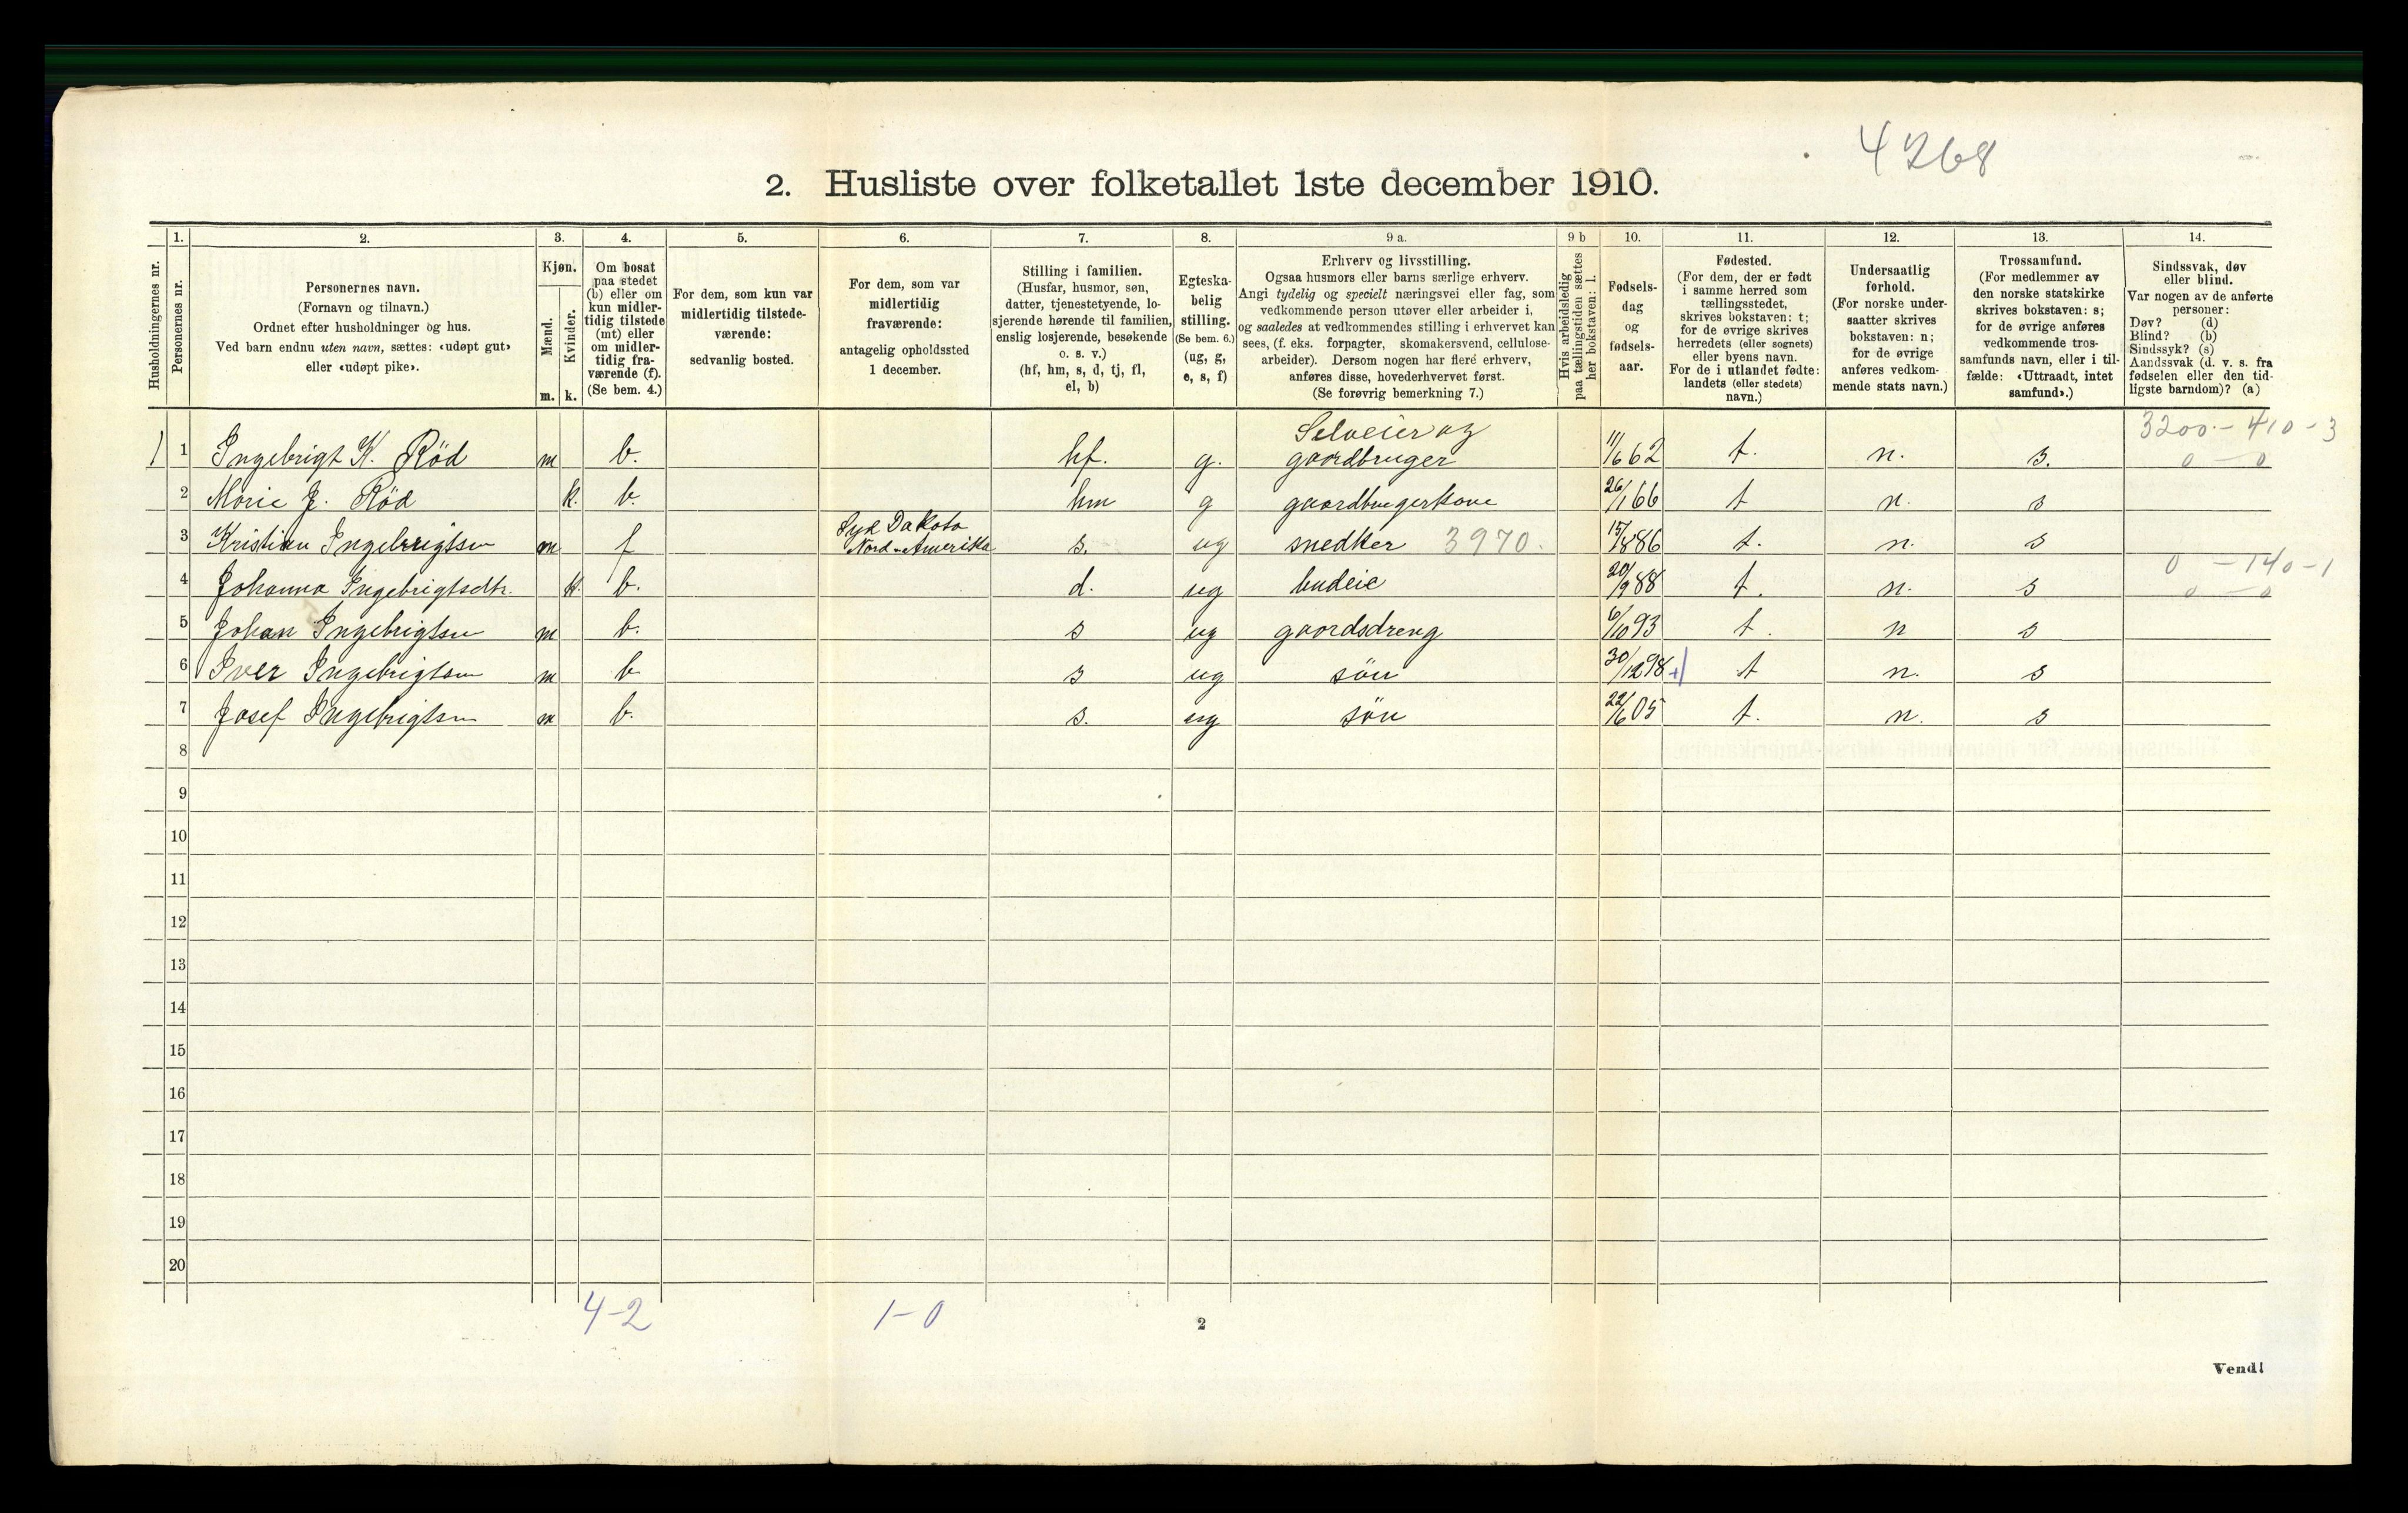 4268
2. Husliste over folketallet 1ste december 1910.
Husholdningernes nr.
1.
Personernes nr.
2.
Personernes navn.
(Fornavn og tilnavn.)
Ordnet efter husholdninger og hus.
Ved barn endnu uten navn, sættes: «udøpt gut»
eller «udøpt pike».
3.
Kjøn.
Mænd.
Kvinder.
m. k.
4.
Om bosat
paa stedet
(b) eller om
kun midler-
tidig tilstede
(mt) eller
om midler-
tidig fra-
værende (f).
(Se bem. 4.)
5.
For dem, som kun var
midlertidig tilstede-
værende:
sedvanlig bosted.
6.
For dem, som var
midlertidig
fraværende:
antagelig opholdssted
1 december.
7.
Stilling i familien.
(Husfar, husmor, søn,
datter, tjenestetyende, lo-
sjerende hørende til familien,
enslig losjerende, besøkende
o. s. v.)
(hf, hm, s, d, tj, fl,
el, b)
8.
Egteska-
belig
stilling.
(Se bem. 6.)
(ug, g,
e, s, f)
9 a.
Erhverv og livsstilling.
Ogsaa husmors eller barns særlige erhverv.
Angi tydelig og specielt næringsvei eller fag, som
vedkommende person utøver eller arbeider i,
og saaledes at vedkommendes stilling i erhvervet kan
sees, (f. eks. forpagter, skomakersvend, cellulose-
arbeider). Dersom nogen har flere erhverv,
anføres disse, hovederhvervet først.
(Se forøvrig bemerkning 7.)
9 b
Hvis arbeidsledig
paa tællingstiden sættes
her bokstaven: l.
10.
Fødsels-
dag
og
fødsels-
aar.
11.
Fødested.
(For dem, der er født
i samme herred som
tællingsstedet,
skrives bokstaven: t;
for de øvrige skrives
herredets (eller sognets)
eller byens navn.
For de i utlandet fødte:
landets (eller stedets)
navn.)
12.
Undersaatlig
forhold.
(For norske under-
saatter skrives
bokstaven: n;
for de øvrige
anføres vedkom-
mende stats navn.)
13.
Trossamfund.
(For medlemmer av
den norske statskirke
skrives bokstaven: s;
for de øvrige anføres
vedkommende tros-
samfunds navn, eller i til-
fælde: «Uttraadt, intet
samfund».)
14.
Sindssvak, døv
eller blind.
Var nogen av de anførte
personer:
Døv? (d)
Blind? (b)
Sindssyk? (s)
Aandssvak (d. v. s. fra
fødselen eller den tid-
ligste barndom)? (a)
Selveier og 3200 - 410 - 3
1 1 Ingebrigt K. Röd m b. hf. g. gaardbruger 11/6 62 t. n. s. 0 - 0
2 Marie J. Röd k. b. hm g gaardbrugerkone 26/1 66 t n. s
Syd Dakota
3 Kristian Ingebrigtsen m f Nord-Amerika s. ug snedker 3970. 15/8 86 t. n. s
0 - 140 - 1
4 Johanna Ingebrigtsdtr. k. b. d. ug budeie 20/9 88 t. n. s 0 - 0
5 Johan Ingebrigtsen m b. s ug gaardsdreng 6/10 93 t. n s
6 Iver Ingebrigtsen m b s ug sön 30/12 98 t n. s
7 Josef Ingebrigtsen m b. s. ug sön 22/6 05 t. n. s
8
9
10
11
12
13
14
15
16
17
18
19
20
4-2 1-0
2
Vend!